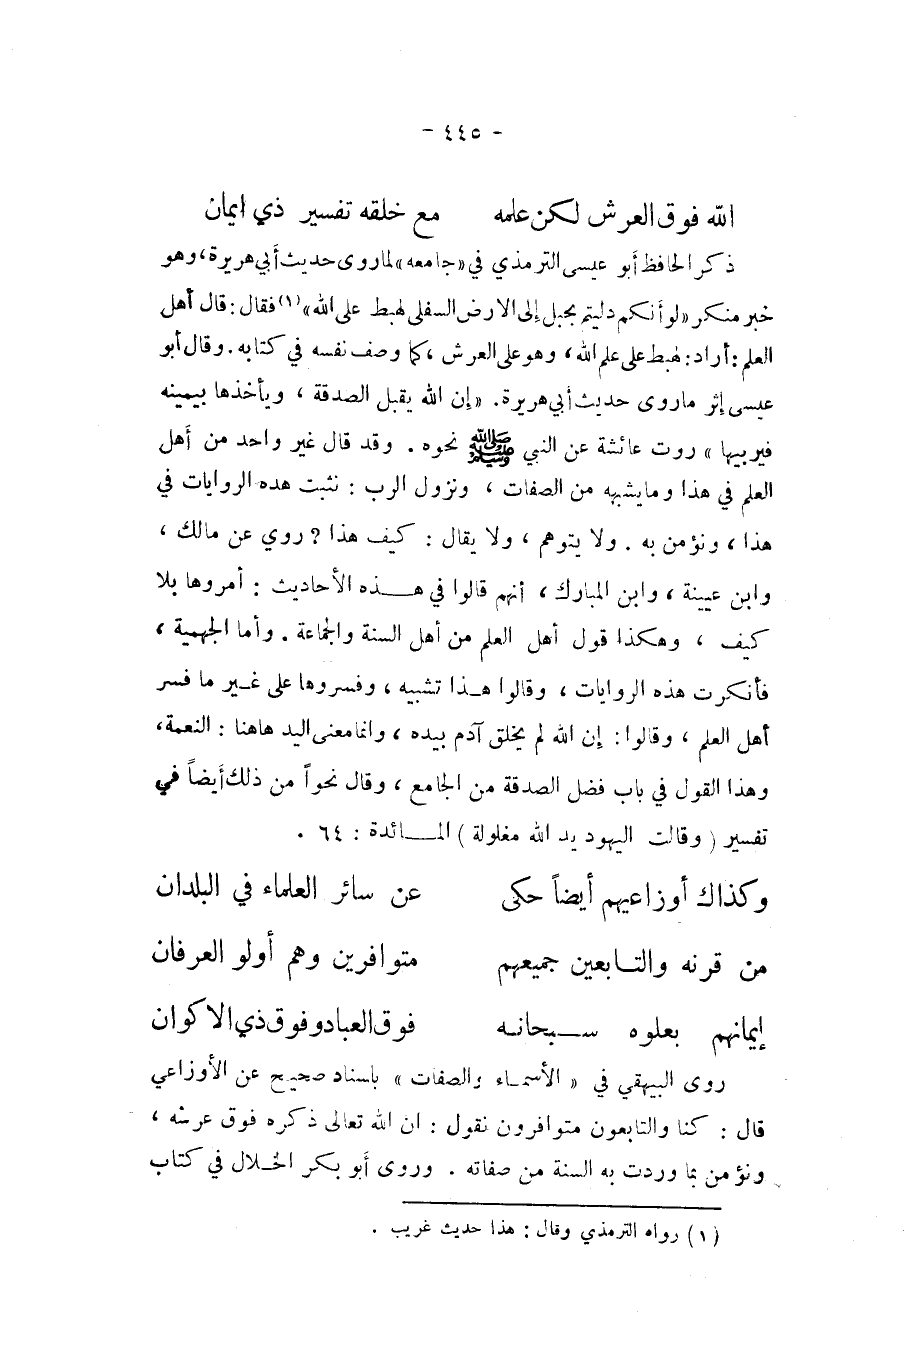 - ٤٤٥ -
الله فوق العرش لكن علمه مع خلقه تفسير ذي ايمان
ذكر الحافظ أبو عيسى الترمذي في «جامعه» لما روى حديث أبي هريرة، وهو
خبر منكر «لو أنكم دليتم بحبل إلى الارض السفلى لهبط على الله»(١) فقال: قال أهل
العلم: أراد: لهبط على علم الله، وهو على العرش، كما وصف نفسه في كتابه. وقال أبو
عيسى إثر ما روى حديث أبي هريرة. «إن الله يقبل الصدقة، ويأخذها بيمينه
فيربيها» روت عائشة عن النبي ﷺ نحوه. وقد قال غير واحد من أهل
العلم في هذا وما يشبهه من الصفات، ونزول الرب: نثبت هذه الروايات في
هذا، ونؤمن به. ولا يتوهم، ولا يقال: كيف هذا؟ روي عن مالك،
وابن عيينة، وابن المبارك، أنهم قالوا في هـــذه الأحاديث: أمروها بلا
كيف، وهكذا قول أهل العلم من أهل السنة والجماعة. وأما الجهمية،
فأنكرت هذه الروايات، وقالوا هـذا تشبيه، وفسروها على غـير ما فسر
أهل العلم، وقالوا: إن الله لم يخلق آدم بيده، وانما معنى اليد هاهنا: النعمة،
وهذا القول في باب فضل الصدقة من الجامع، وقال نحواً من ذلك أيضاً في
تفسير (وقالت اليهود يد الله مغلولة) المـــائدة: ٦٤.
وكذاك أوزاعيهم أيضاً حكى عن سائر العلماء في البلدان
من قرنه والتـابعين جميعهم متوافرين وهم أولو العرفان
إيمانهم بعلوه ســبحانـه فوق العباد وفوق ذي الاكوان
روى البيهقي في «الأسمـاء والصفات» باسناد صحيح عن الأوزاعي
قال: كنا والتابعون متوافرون نقول: ان الله تعالى ذكره فوق عرشه،
ونؤمن بما وردت به السنة من صفاته. وروى أبو بكر الخـلال في كتاب
(١) رواه الترمذي وقال: هذا حديث غريب.